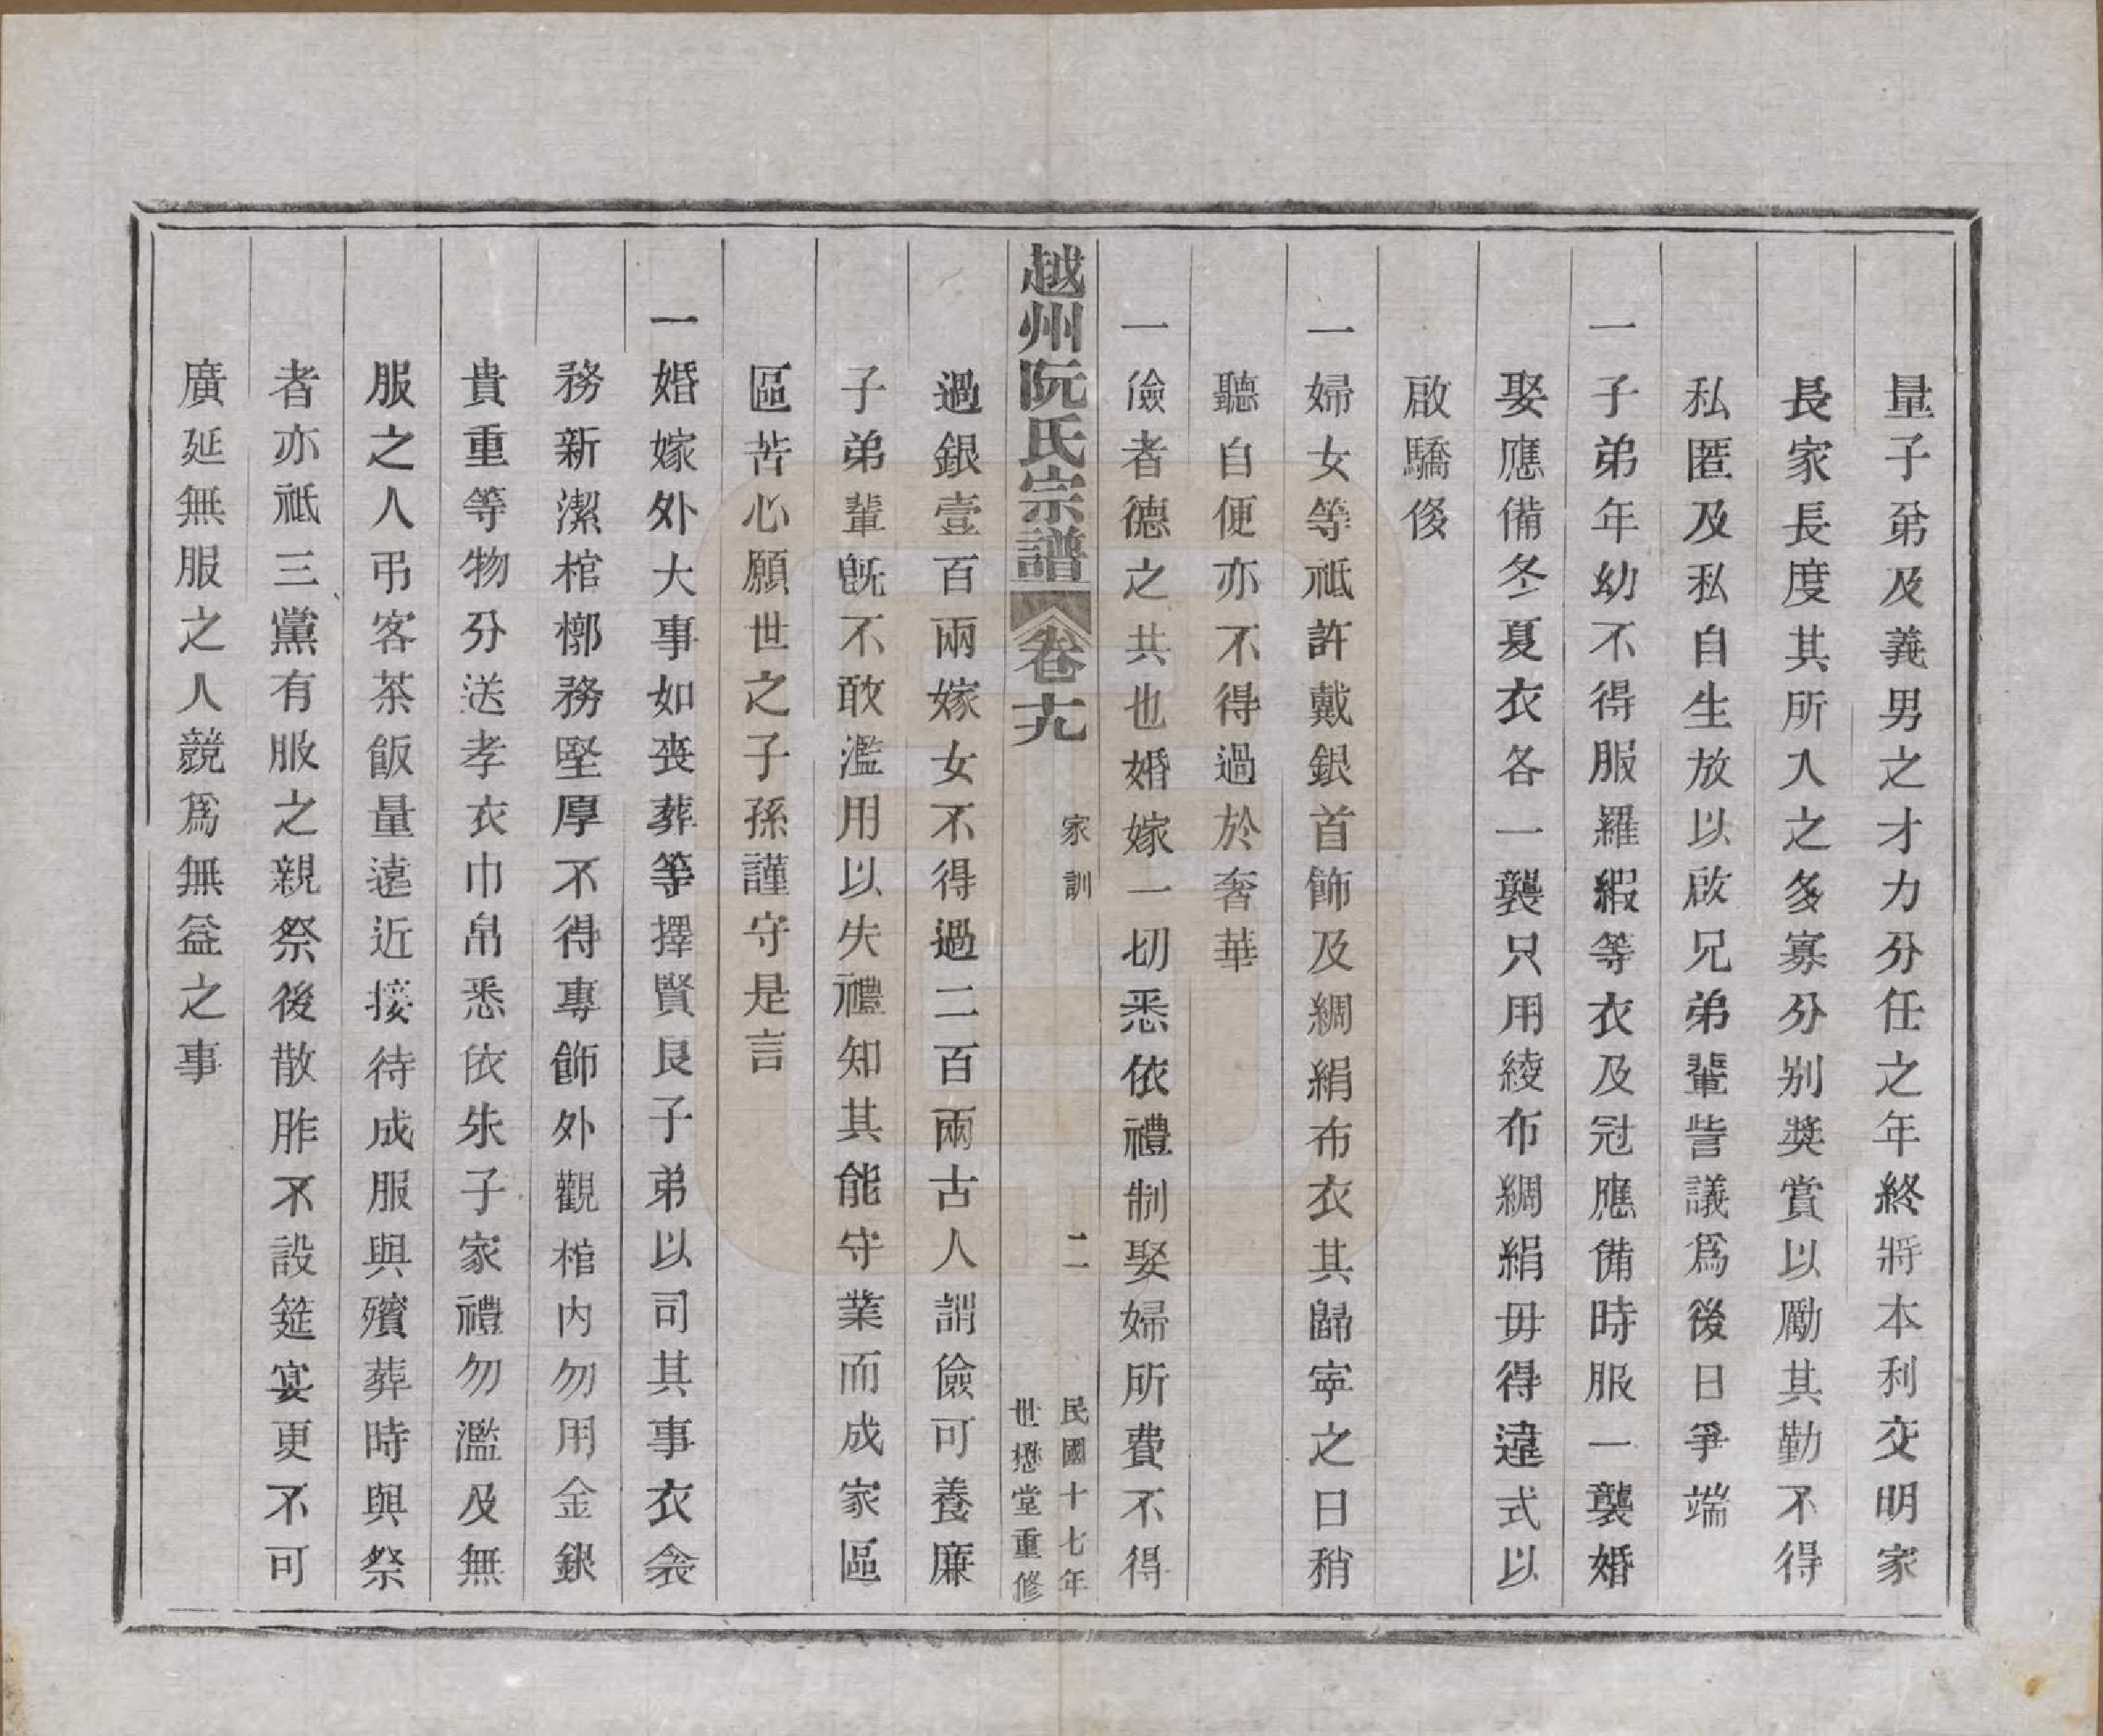 量子弟及義男之才力分任之年終將本利交明家
長家長度其所入之多寡分别奨賞以勵其勤不得
私匿及私自生放以啟兄弟輩訾議爲後日爭端
一子弟年幼不得服羅緞等衣及冠應備時服一襲婚
娶應備冬夏衣各一襲只用綾布綢絹毋得違式以
啟驕侈
一婦女等祗許戴銀首飾及綢絹布衣其歸寧之日稍
聽自便亦不得過於奢華
一儉者德之共也婚嫁一切悉依禮制娶婦所費不得
越州阮氏宗譜 卷十九 家訓 二 民國十七年
世懋堂重修
過銀壹百兩嫁女不得過二百兩古人謂儉可養廉
子弟輩旣不敢濫用以失禮知其能守業而成家區
區苦心願世之子孫謹守是言
一婚嫁外大事如喪葬等擇賢良子弟以司其事衣衾
務新潔棺槨務堅厚不得專飾外觀棺内勿用金銀
貴重等物分送孝衣巾帛悉依朱子家禮勿濫及無
服之人弔客茶飯量遠近接待成服與殯葬時與祭
者亦祗三黨有服之親祭後散胙不設筵宴更不可
廣延無服之人競爲無益之事